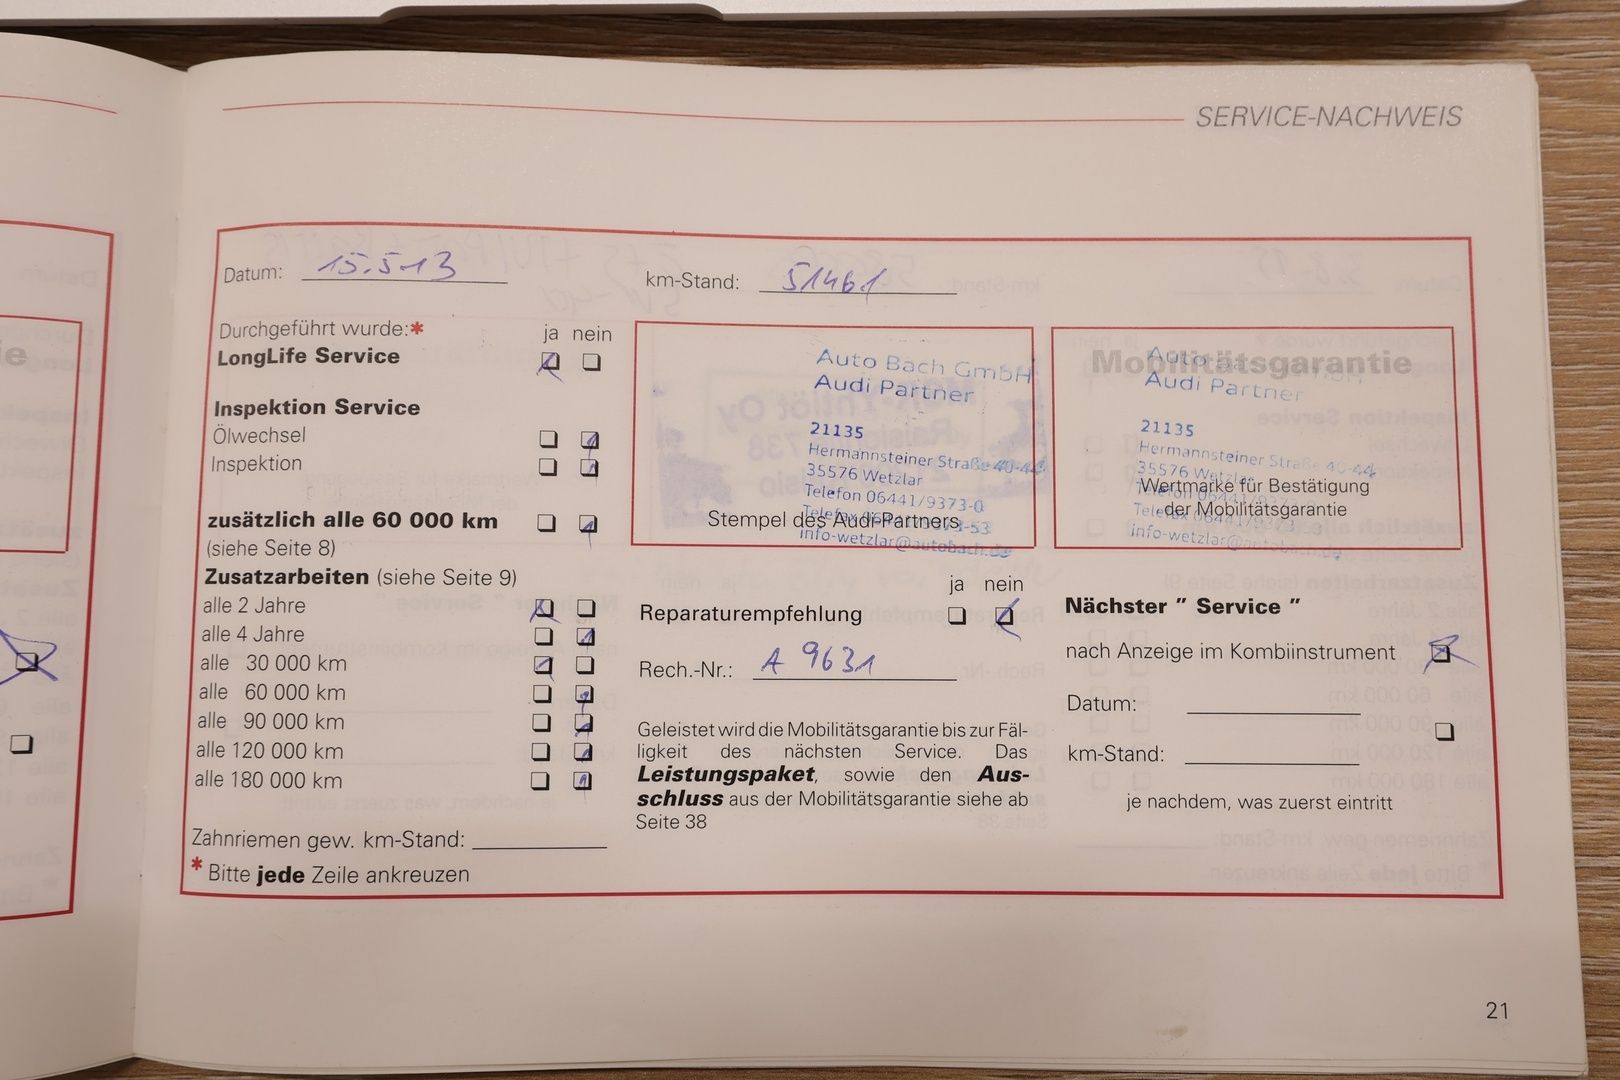 SERVICE-NACHWEIS
Datum: 15.5.13
km-Stand: 51461
Durchgeführt wurde:* ja nein
LongLife Service
Inspektion Service
Ölwechsel
Inspektion
zusätzlich alle 60 000 km
(siehe Seite 8)
Zusatzarbeiten (siehe Seite 9)
alle 2 Jahre
alle 4 Jahre
alle 30 000 km
alle 60 000 km
alle 90 000 km
alle 120 000 km
alle 180 000 km
Zahnriemen gew. km-Stand:
* Bitte jede Zeile ankreuzen
Auto Bach GmbH
Audi Partner
21135
Hermannsteiner Straße 40-44
35576 Wetzlar
Telefon 06441/9373-0
Telefax 06441/9373-53
Stempel des Audi-Partners
info-wetzlar@autobach.de
Mobilitätsgarantie
Auto Bach GmbH
Audi Partner
21135
Hermannsteiner Straße 40-44
35576 Wetzlar
Wertmarke für Bestätigung
Telefon 06441/9373-0
der Mobilitätsgarantie
Telefax 06441/9373-53
info-wetzlar@autobach.de
ja nein
Reparaturempfehlung
Rech.-Nr.: A 9631
Geleistet wird die Mobilitätsgarantie bis zur Fäl-
ligkeit des nächsten Service. Das
Leistungspaket, sowie den Aus-
schluss aus der Mobilitätsgarantie siehe ab
Seite 38
Nächster " Service "
nach Anzeige im Kombiinstrument
Datum:
km-Stand:
je nachdem, was zuerst eintritt
21